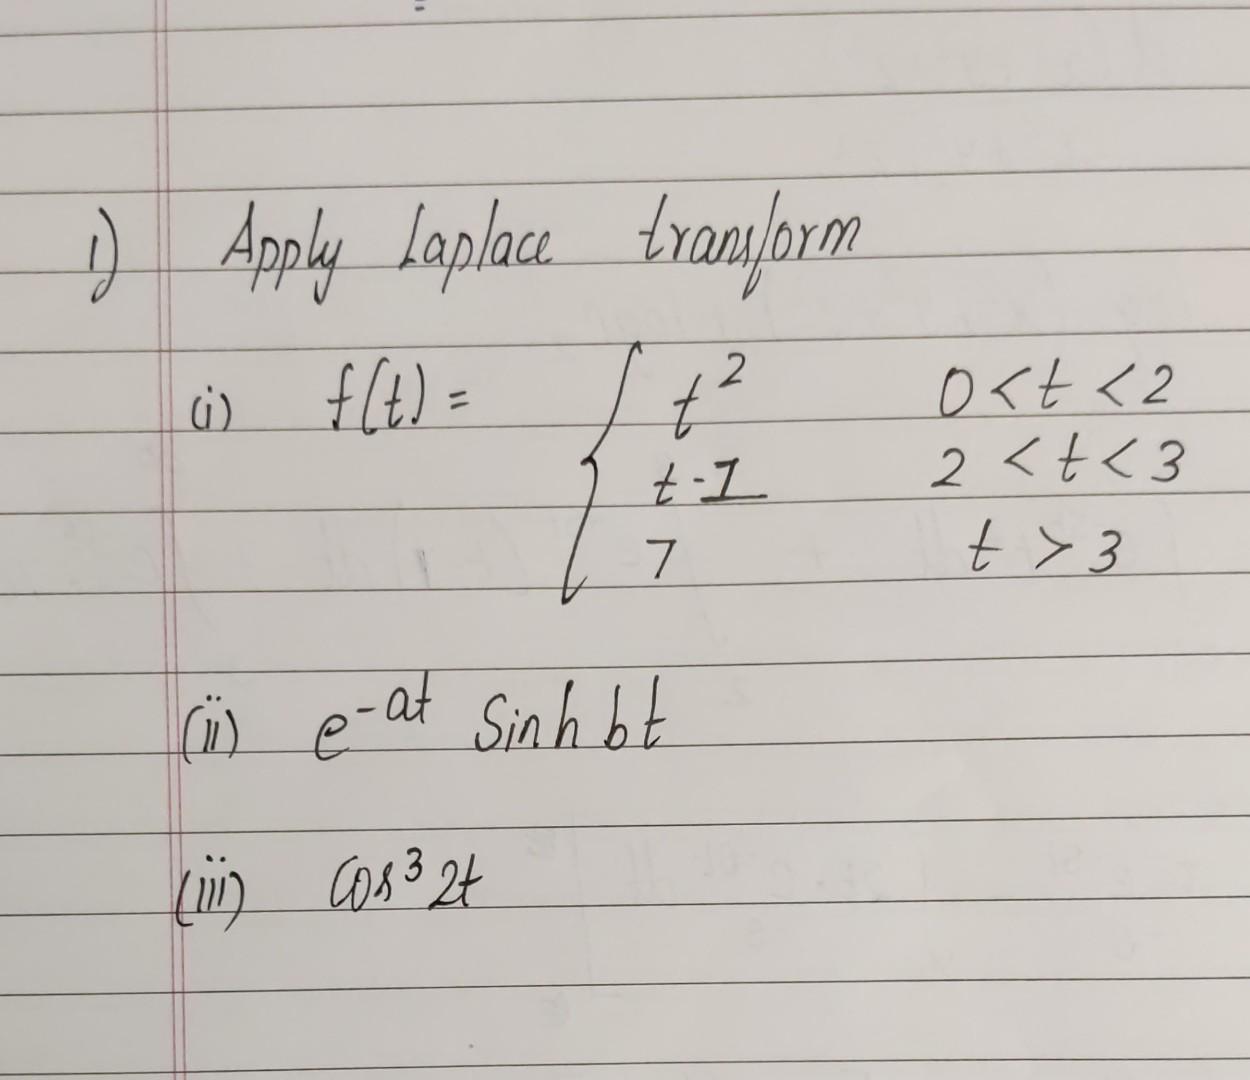 1) Apply Laplace transform
(i) f(t) = { t² 0 < t < 2
t - 1 2 < t < 3
7 t > 3
(ii) e^{-at} Sinh bt
(iii) Cos³ 2t